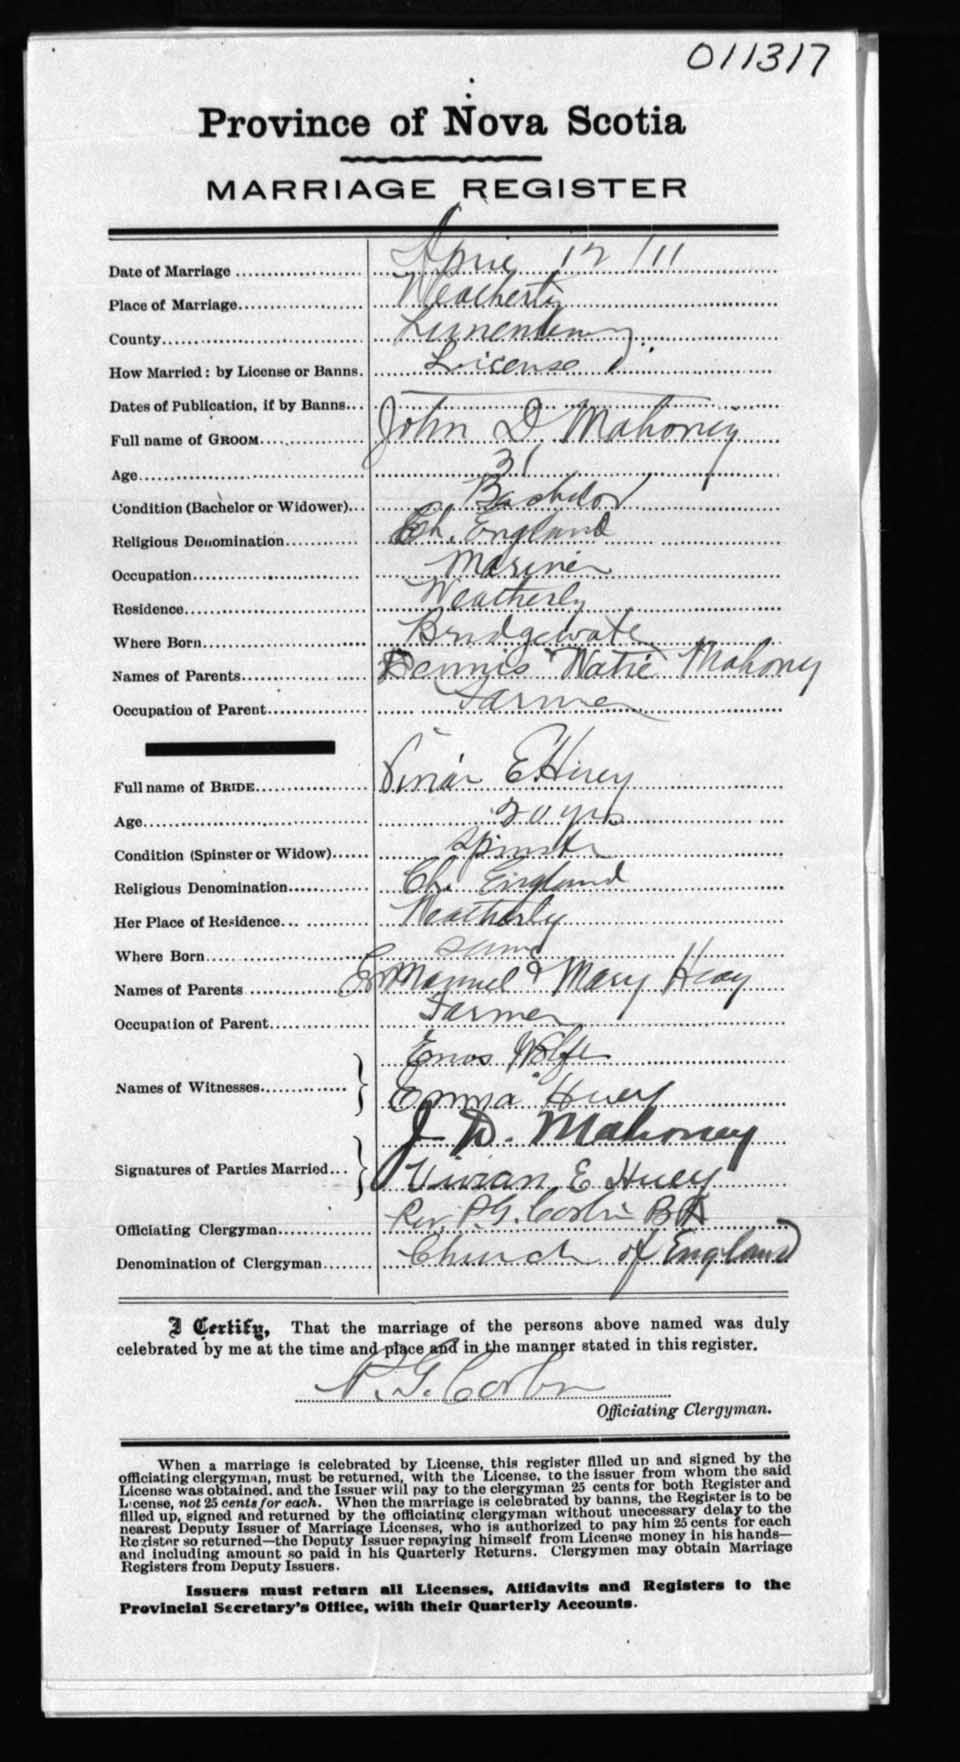 011317
Province of Nova Scotia
MARRIAGE REGISTER
Date of Marriage April 12 /11
Place of Marriage Weatherly
County Lunenburg
How Married: by License or Banns. License
Dates of Publication, if by Banns
Full name of GROOM John D. Mahoney
Age 31
Condition (Bachelor or Widower) Bachelor
Religious Denomination Ch. England
Occupation Mariner
Residence Weatherly
Where Born Bridgewater
Names of Parents Dennis & Mahoney
Occupation of Parent Farmer
Full name of BRIDE Vivian E. Huey
Age 20 yrs
Condition (Spinster or Widow) Spinster
Religious Denomination Ch. England
Her Place of Residence Weatherly
Where Born same
Names of Parents Emanuel & Mary Huey
Occupation of Parent Farmer
Names of Witnesses Enos Wolfe
Emma Huey
Signatures of Parties Married J. D. Mahoney
Vivian E Huey
Officiating Clergyman Rev. P.G. Corbin BA
Denomination of Clergyman Church of England
I Certify, That the marriage of the persons above named was duly
celebrated by me at the time and place and in the manner stated in this register.
P. G. Corbin
Officiating Clergyman.
When a marriage is celebrated by License, this register filled up and signed by the
officiating clergyman, must be returned, with the License, to the issuer from whom the said
License was obtained, and the Issuer will pay to the clergyman 25 cents for both Register and
License, not 25 cents for each. When the marriage is celebrated by banns, the Register is to be
filled up, signed and returned by the officiating clergyman without unnecessary delay to the
nearest Deputy Issuer of Marriage Licenses, who is authorized to pay him 25 cents for each
Register so returned—the Deputy Issuer repaying himself from License money in his hands—
and including amount so paid in his Quarterly Returns. Clergymen may obtain Marriage
Registers from Deputy Issuers.
Issuers must return all Licenses, Affidavits and Registers to the
Provincial Secretary's Office, with their Quarterly Accounts.